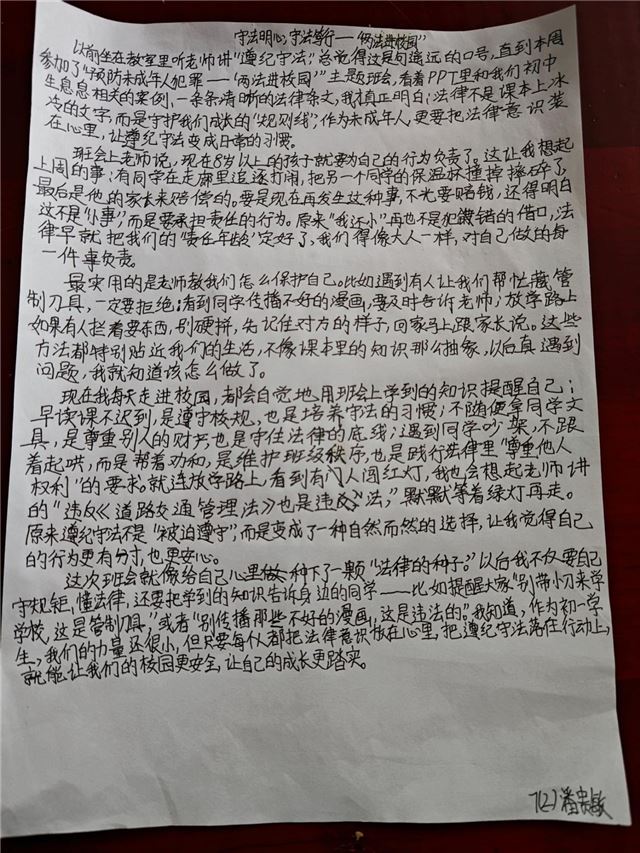 守法明心,守法笃行——"两法进校园"
以前坐在教室里听老师讲"遵纪守法",总觉得这是句遥远的口号,直到本周
参加了"预防未成年人犯罪——'两法进校园'"主题班会,看着PPT里和我们初中
生息息相关的案例,一条条清晰的法律条文,我才真正明白:法律不是课本上冰
冷的文字,而是守护我们成长的"规则线",作为未成年人,更要把法律意识装
在心里,让遵纪守法变成日常的习惯。
班会上老师说,现在8岁以上的孩子就要为自己的行为负责了。这让我想起
上周的事:有同学在走廊里追逐打闹,把另一个同学的保温杯撞掉摔碎了,
最后是他的家长来赔偿的。要是现在再发生这种事,不光要赔钱,还得明白
这不是"小事",而是要承担责任的行为。原来"我还小"再也不是犯错的借口,法
律早就把我们的"责任年龄"定好了,我们得像大人一样,对自己做的每
一件事负责。
最实用的是老师教我们怎么保护自己。比如遇到有人让我们帮忙藏管
制刀具,一定要拒绝;看到同学传播不好的漫画,要及时告诉老师;放学路上
如果有人拦着要东西,别硬拼,先记住对方的样子,回家马上跟家长说。这些
方法都特别贴近我们的生活,不像课本里的知识那么抽象,以后真遇到
问题,我就知道该怎么做了。
现在我每天走进校园,都会自觉地用班会上学到的知识提醒自己:
早读课不迟到,是遵守校规,也是培养守法的习惯;不随便拿同学文
具,是尊重别人的财产也是守住法律的底线;遇到同学吵架,不跟
着起哄,而是帮着劝和,是维护班级秩序,也是践行法律里"尊重他人
权利"的要求。就连放学路上,看到有人闯红灯,我也会想起老师讲
的"违反《道路交通管理法》也是违法",默默等着绿灯再走。
原来遵纪守法不是"被迫遵守",而是变成了一种自然而然的选择,让我觉得自己
的行为更有分寸,也更安心。
这次班会就像给自己心里种下了一颗"法律的种子"。以后我不仅要自己
守规矩,懂法律,还要把学到的知识告诉身边的同学——比如提醒大家"别带小刀来学
学校,这是管制刀具"或者"别传播那些不好的漫画,这是违法的。"我知道,作为初一学
生,我们的力量还很小,但只要每个人都把法律意识放在心里,把遵纪守法落在行动上,
就能让我们的校园更安全,让自己的成长更踏实。
7(2)潘